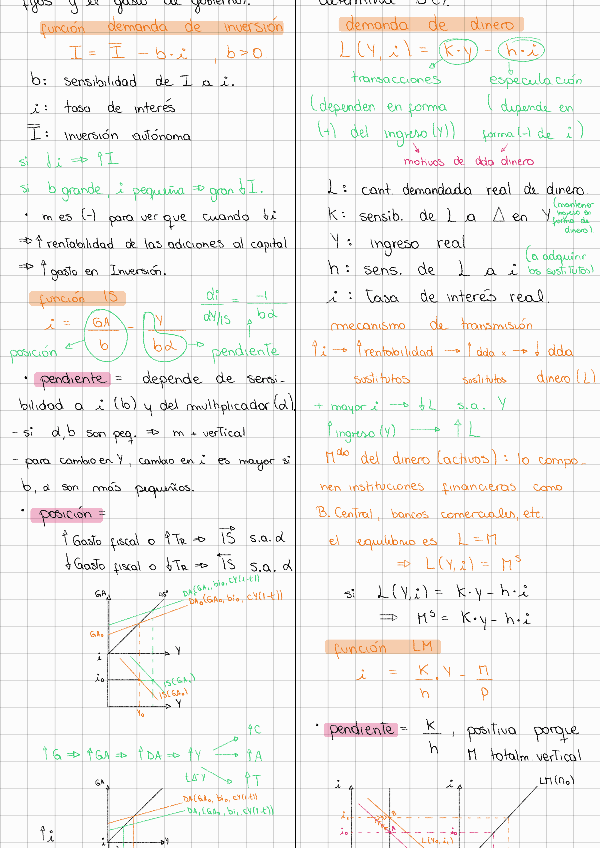 fijos y el gasto de gobierno.
función demanda de inversión
I = I̅ - b·i , b>0
b: sensibilidad de I a i.
i: tasa de interés
I̅: inversión autónoma
si ↓i ⇒ ↑I
si b grande, i pequeña ⇒ gran ↓I.
· m es (-) para ver que cuando ↓i
⇒ ↑ rentabilidad de las adiciones al capital
⇒ ↑ gasto en Inversión.
función IS
i = GA/b - Y/bα
di/dY/IS = -1/bα
posición
pendiente
· pendiente = depende de sensi-
bilidad a i (b) y del multiplicador (α)
- si α,b son peq. ⇒ m + vertical
- para cambio en Y, cambio en i es mayor si
b, α son más pequeños.
· posición =
↑ Gasto fiscal o ↑TR ⇒ IS s.a. α
↓ Gasto fiscal o ↓TR ⇒ IS s.a. α
GA
45°
DA1(GA1, bi0, cY(1-t))
DA0(GA0, bi0, cY(1-t))
GA0
i
Y
i0
IS(GA1)
IS(GA0)
Y0
Y
↑G ⇒ ↑GA ⇒ ↑DA ⇒ ↑Y
↑C
↑A
↑T
GA
DA0(GA0, bi0, cY(1-t))
DA1(GA0, bi1, cY(1-t))
↑i
i
Y
demanda de dinero
L(Y, i) = k·y - h·i
transacciones especulación
(dependen en forma (depende en
(+) del ingreso (Y)) forma (-) de i)
motivos de dda dinero
L: cant. demandada real de dinero.
K: sensib. de L a Δ en Y
(mantener ingreso en forma de dinero)
Y: ingreso real
h: sens. de L a i
(a adquirir los sustitutos)
i: Tasa de interés real.
mecanismo de transmisión
↑i → ↑rentabilidad → ↑ dda x → ↓ dda
sustitutos sustitutos dinero (L)
+ mayor i → ↓L s.a. Y
↑ingreso (Y) → ↑L
Mdo del dinero (activos): lo compo-
nen instituciones financieras como
B. Central, bancos comerciales, etc.
el equilibrio es L = M
⇒ L(Y,i) = Mˢ
si L(Y,i) = K·y - h·i
⇒ Mˢ = K·y - h·i
función LM
i = K/h · Y - M/P
· pendiente = K/h , positiva porque
M totalm vertical
i
i1
i0
L(Y0, i)
i
LM(M0)